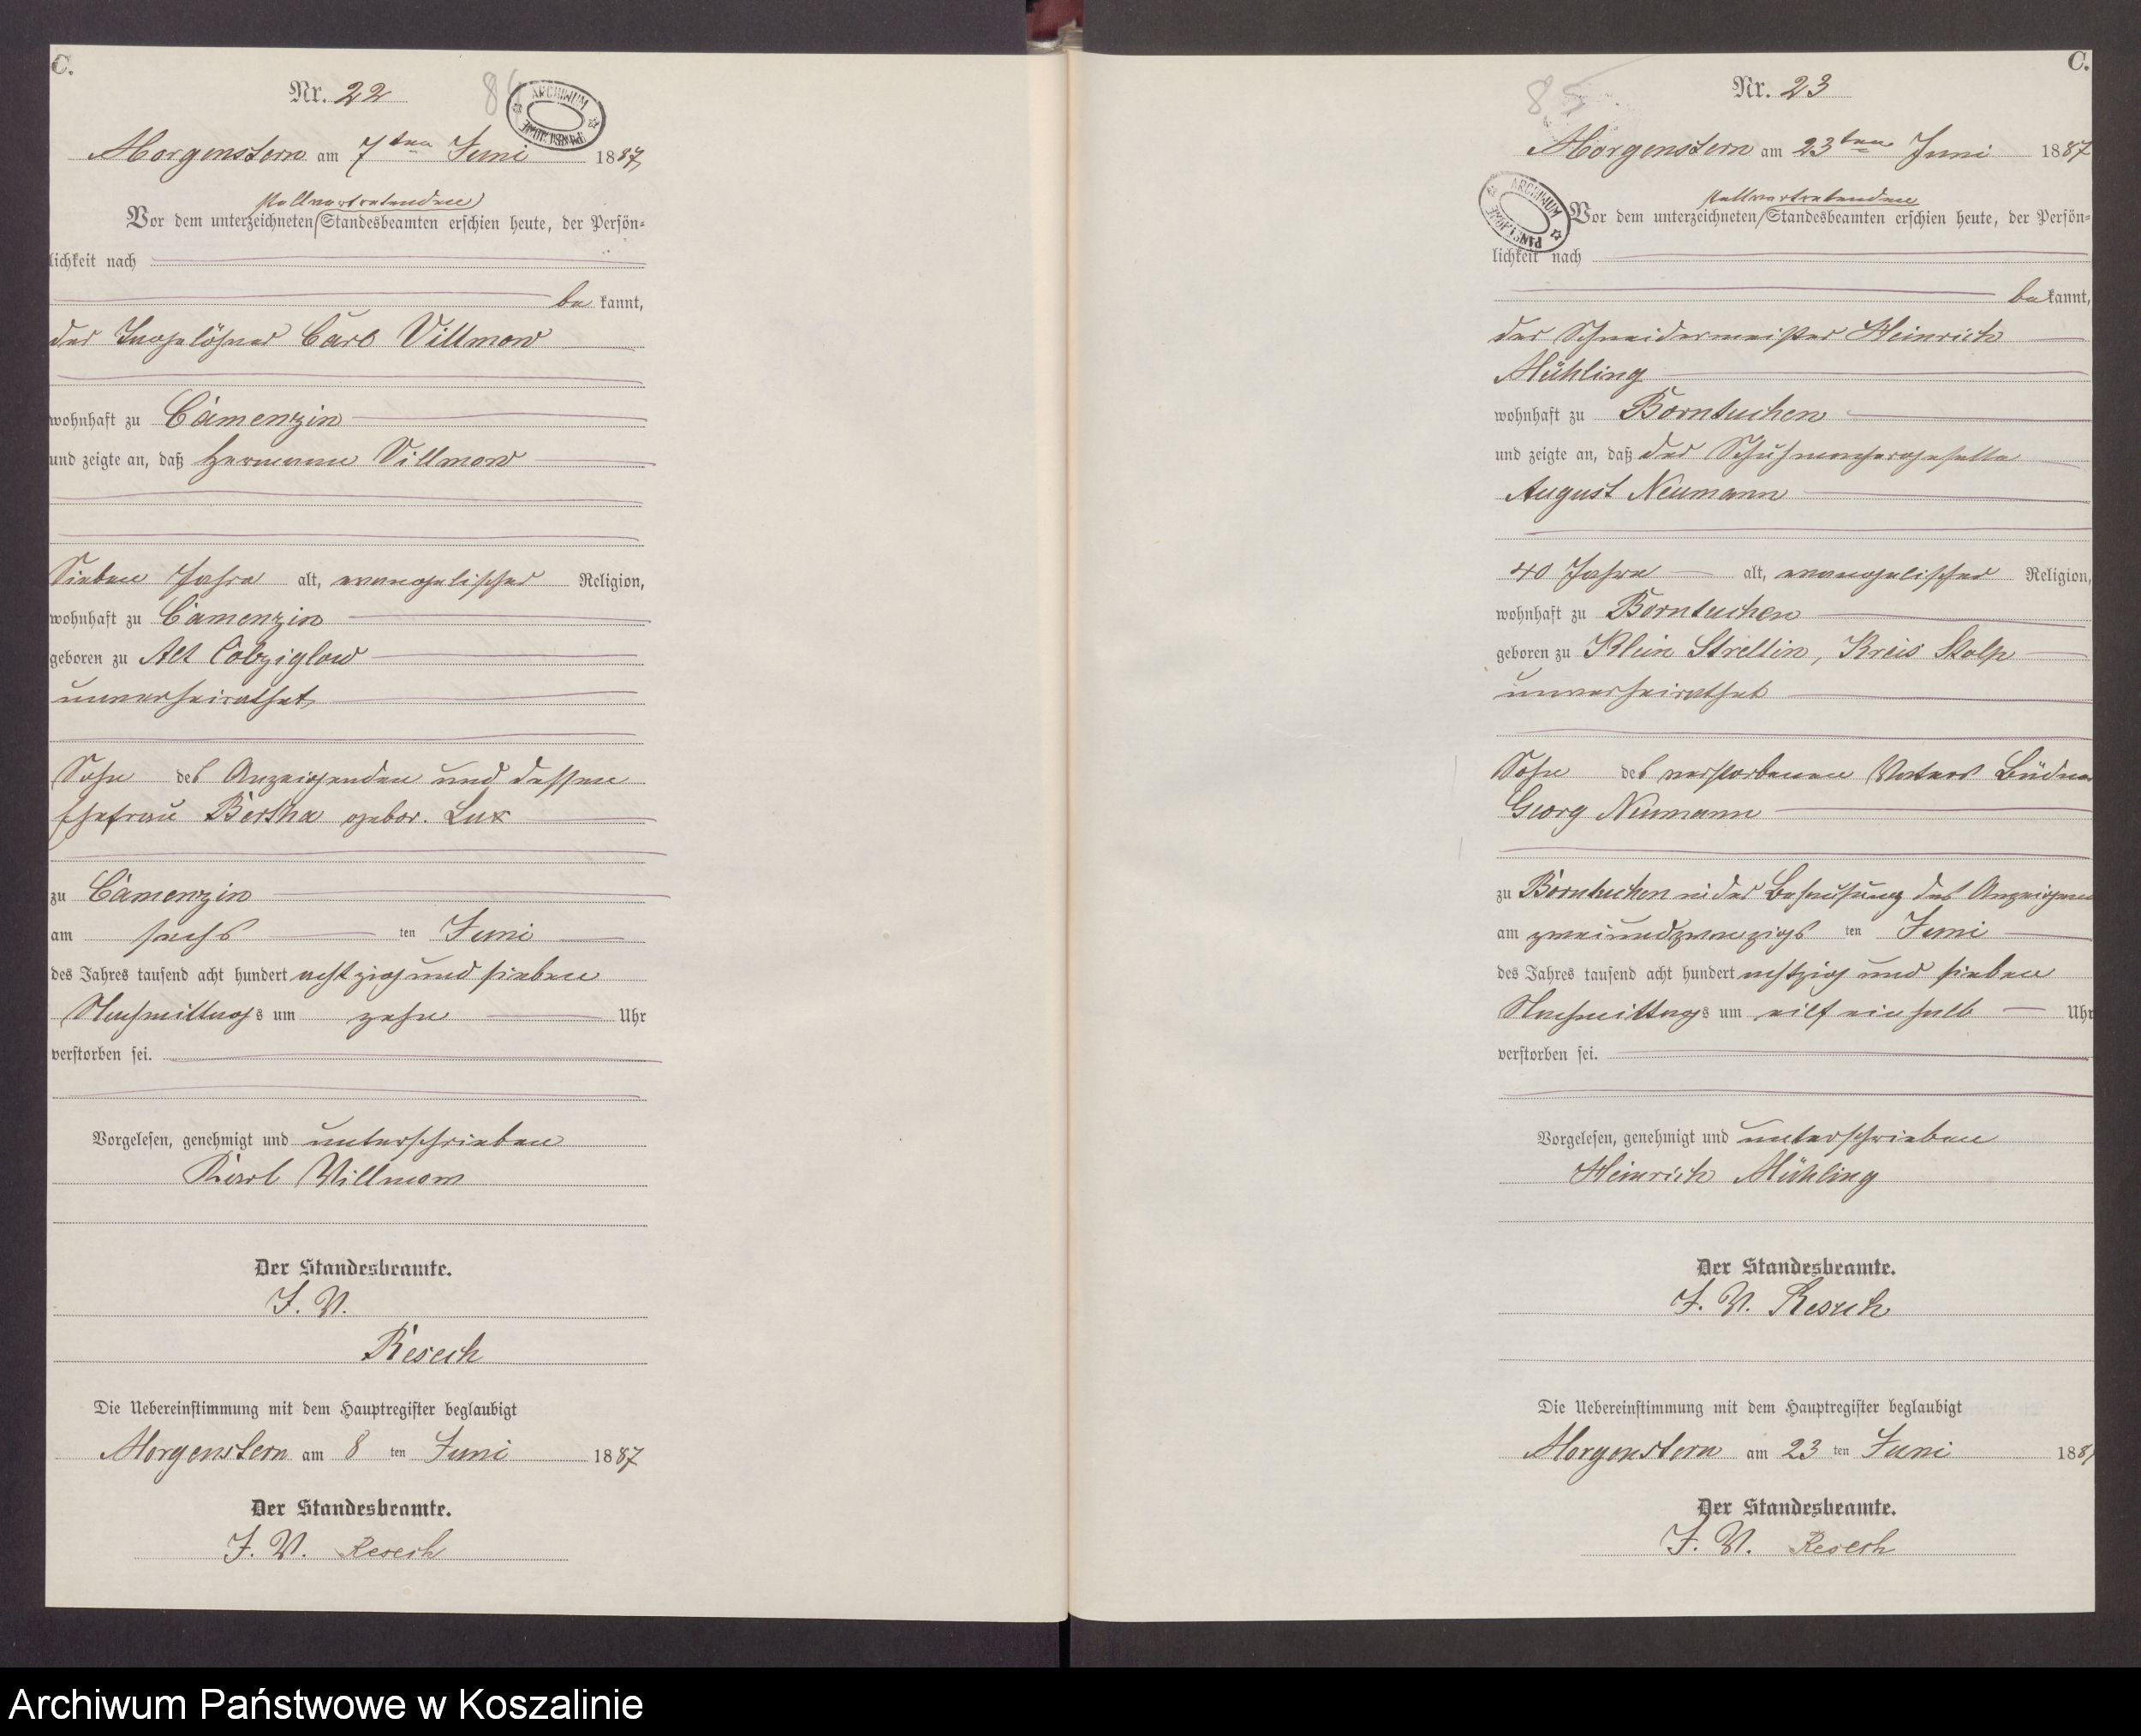 C.
Nr. 22
84
ARCHIWUM PAŃSTWOWE
Morgenstern am 7ten Juni 1887
stellvertretenden
Vor dem unterzeichneten Standesbeamten erschien heute, der Persön-
lichkeit nach
be kannt,
der Tagelöhner Carl Villmow
wohnhaft zu Camenzin
und zeigte an, daß Hermann Villmow
Sieben Jahre alt, evangelischer Religion,
wohnhaft zu Camenzin
geboren zu Alt Colziglow
unverheirathet
Sohn des Anzeigenden und dessen
Ehefrau Bertha gebor. Lux
zu Camenzin
am sechs ten Juni
des Jahres tausend acht hundert achtzig und sieben
Nachmittags um zehn Uhr
verstorben sei.
Vorgelesen, genehmigt und unterschrieben
Karl Villmow
Der Standesbeamte.
J. V.
Resech
Die Uebereinstimmung mit dem Hauptregister beglaubigt
Morgenstern am 8 ten Juni 1887
Der Standesbeamte.
J. V. Resech
C.
Nr. 23
85
Morgenstern am 23ten Juni 1887
ARCHIWUM PAŃSTWOWE
stellvertretenden
Vor dem unterzeichneten Standesbeamten erschien heute, der Persön-
lichkeit nach
be kannt,
der Schneidermeister Heinrich
Mühling
wohnhaft zu Borntuchen
und zeigte an, daß der Schuhmachergeselle
August Neumann
40 Jahre alt, evangelischer Religion,
wohnhaft zu Borntuchen
geboren zu Klein Strellin, Kreis Stolp
unverheirathet
Sohn des verstorbenen Vaters Büdner
Georg Neumann
zu Borntuchen in der Behausung des Anzeigen
am zweiundzwanzigs ten Juni
des Jahres tausend acht hundert achtzig und sieben
Nachmittags um eilf ein halb Uhr
verstorben sei.
Vorgelesen, genehmigt und unterschrieben
Heinrich Mühling
Der Standesbeamte.
J. V. Resech
Die Uebereinstimmung mit dem Hauptregister beglaubigt
Morgenstern am 23 ten Juni 188
Der Standesbeamte.
J. V. Resech
Archiwum Państwowe w Koszalinie